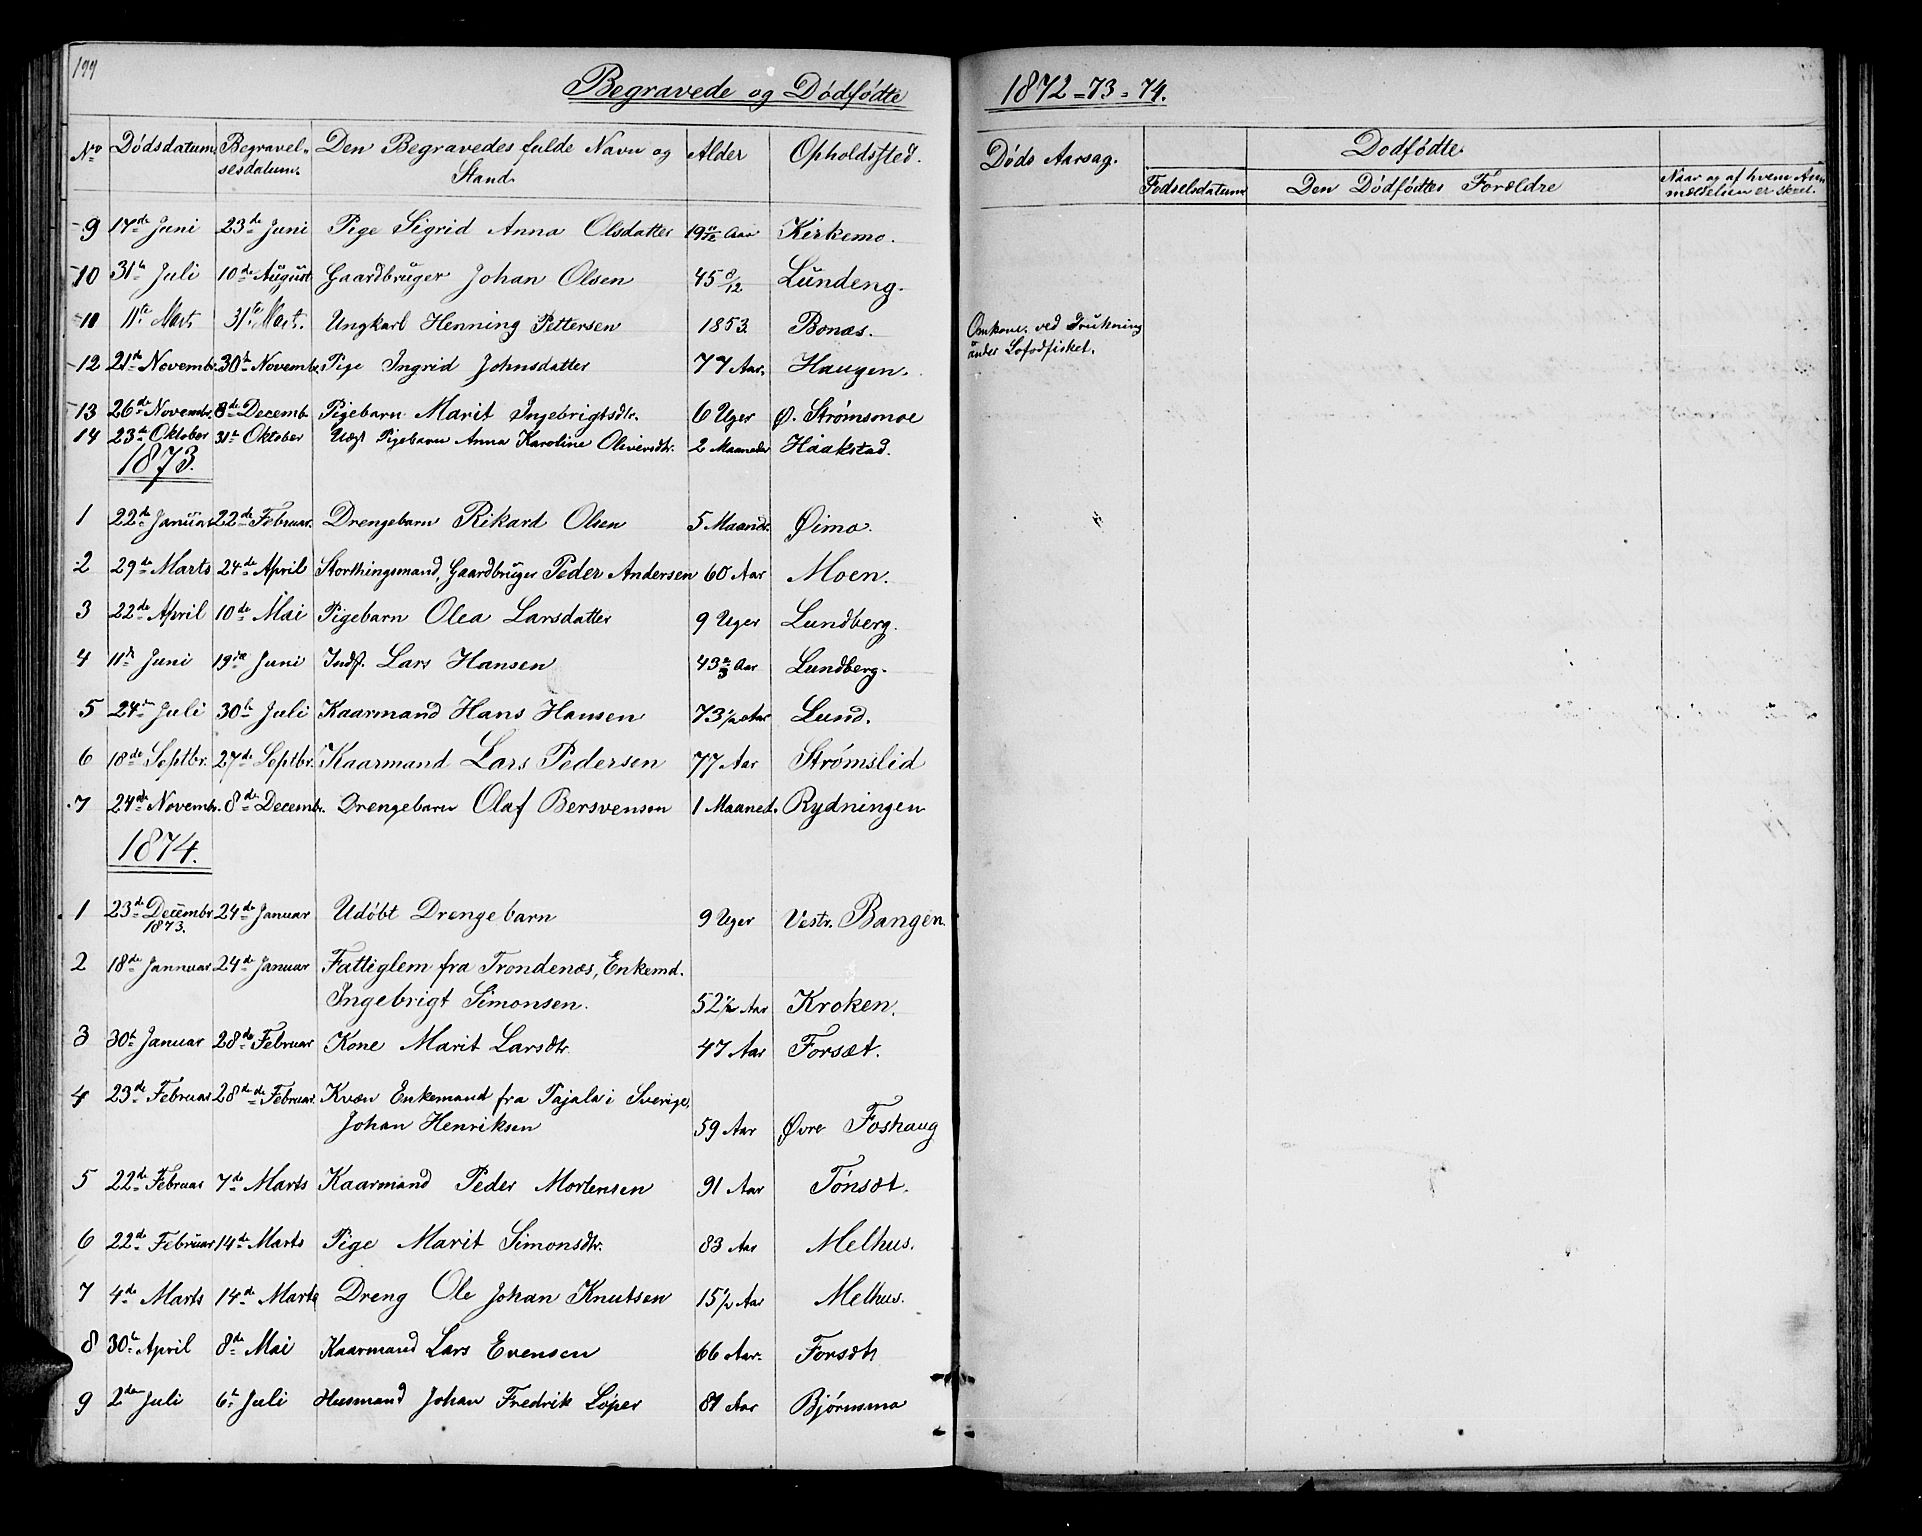 199
Begravede og Dødfødte
No Dødsdatum. Begravelsesdatum. Den Begravedes fulde Navn og Stand. Alder Opholdssted.
9 17de Juni 23de Juni Pige Sigrid Anna Olsdatter 19 11/12 Aar Kirkemo.
10 31te Juli 10de August Gaardbruger Johan Olsen 45 8/12 Lundeng.
11 11te Marts 31te Mart. Ungkarl Henning Pettersen 1853 Bonæs.
12 21de Novembr. 30te Novembr. Pige Ingrid Johnsdatter 77 Aar. Haugen.
13 26de Novembr. 8de Decemb. Pigebarn Marit Ingebrigtsdtr. 6 Uger Ø. Strømsmoe
14 23de Oktober 31te Oktober Uægt Pigebarn Anna Karoline Oliversdtr. 2 Maaneder Haakstad.
1873.
1 22de Januar 22de Februar. Drengebarn Rikard Olsen 5 Maandr. Øimo.
2 29de Marts 24de April Storthingsmand, Gaardbruger Peder Andersen 60 Aar Moen.
3 22de April 10de Mai Pigebarn Olea Larsdatter 9 Uger Lundberg.
4 11te Juni 19de Juni Indst. Lars Hansen 43 2/3 Aar Lundberg.
5 24de Juli 30te Juli Kaarmand Hans Hansen 73 1/2 Aar Lund.
6 18de Septbr. 27de Septbr. Kaarmand Lars Pedersen 77 Aar Strømslid
7 24de Novembr. 8de Decembr. Drengebarn Olaf Bersvensen 1 Maaned. Rydningen
1874.
1 23de Decembr 1873. 24de Januar Udøbt Drengebarn 9 Uger Vestr. Bangen.
2 18de Jannuar 24de Januar Fattiglem fra Trondenæs, Enkemd.
Ingebrigt Simonsen. 52 1/2 Aar Kroken.
3 30te Januar 28de Februar Kone Marit Larsdtr 47 Aar Forsæt.
4 23de Februar 28de de Februar. Kvæn Enkemand fra Pajala i Sverige,
Johan Henriksen 59 Aar Øvre Foshaug
5 22de Februar 7de Marts Kaarmand Peder Mortensen 91 Aar Tønsæt.
6 22de Februar 14de Marts Pige Marit Simonsdtr. 83 Aar Melhus.
7 4de Marts 14de Marts Dreng Ole Johan Knutsen 15 1/2 Aar Melhus.
8 30te April 8de Mai Kaarmand Lars Evensen 66 Aar. Forsæt
9 2den Juli 6te Juli Husmand Johan Fredrik Løper 81 Aar Bjørnsmo
1872-73-74.
Døds Aarsag. Dodfødte.
Fodselsdatum Den Dødfødtes Forældre Naar og af hvem Anmældelsen er skeet.
Omkom. ved Drukning
under Lofodfisket.